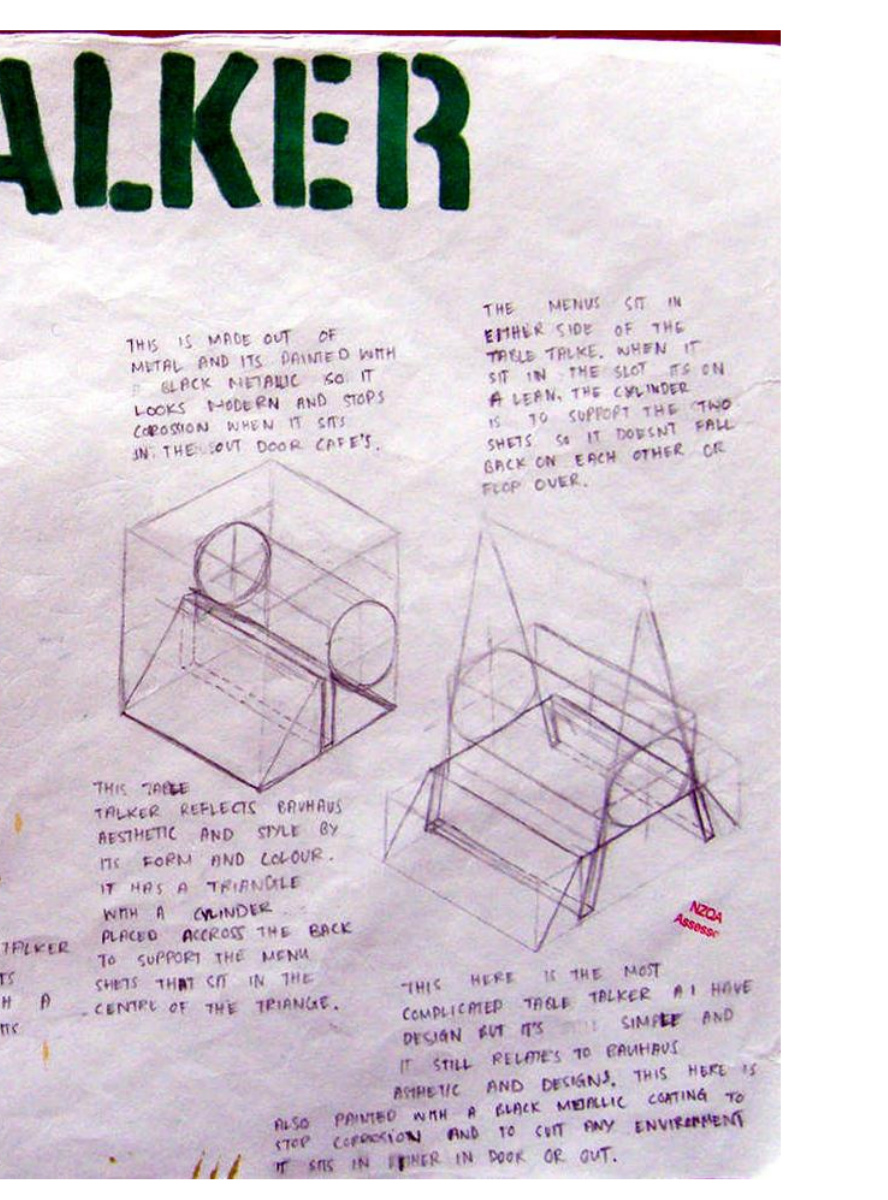 ALKER
THIS IS MADE OUT OF
METAL AND ITS PAINTED WITH
BLACK METALLIC SO IT
LOOKS MODERN AND STOPS
COROSSION WHEN IT SITS
IN THE OUT DOOR CAFE'S.
THE MENUS SIT IN
EITHER SIDE OF THE
TABLE TALKE. WHEN IT
SIT IN THE SLOT ITS ON
A LEAN. THE CYLINDER
IS TO SUPPORT THE TWO
SHETS SO IT DOESNT FALL
BACK ON EACH OTHER OR
FLOP OVER.
THIS TABLE
TALKER REFLECTS BAUHAUS
AESTHETIC AND STYLE BY
ITS FORM AND COLOUR.
IT HAS A TRIANGLE
WITH A CYLINDER
PLACED ACCROSS THE BACK
TO SUPPORT THE MENU
SHETS THAT SIT IN THE
CENTRE OF THE TRIANGE.
TALKER
TS
H A
ITS
NZQA
Assesso
THIS HERE IS THE MOST
COMPLICATED TABLE TALKER A I HAVE
DESIGN BUT IT'S SIMPLE AND
IT STILL RELATE'S TO BAUHAUS
ASTHETIC AND DESIGNS. THIS HERE IS
ALSO PAINTED WITH A BLACK METALLIC COATING TO
STOP CORROSION AND TO SUIT ANY ENVIRONMENT
IT SITS IN EITHER IN DOOR OR OUT.